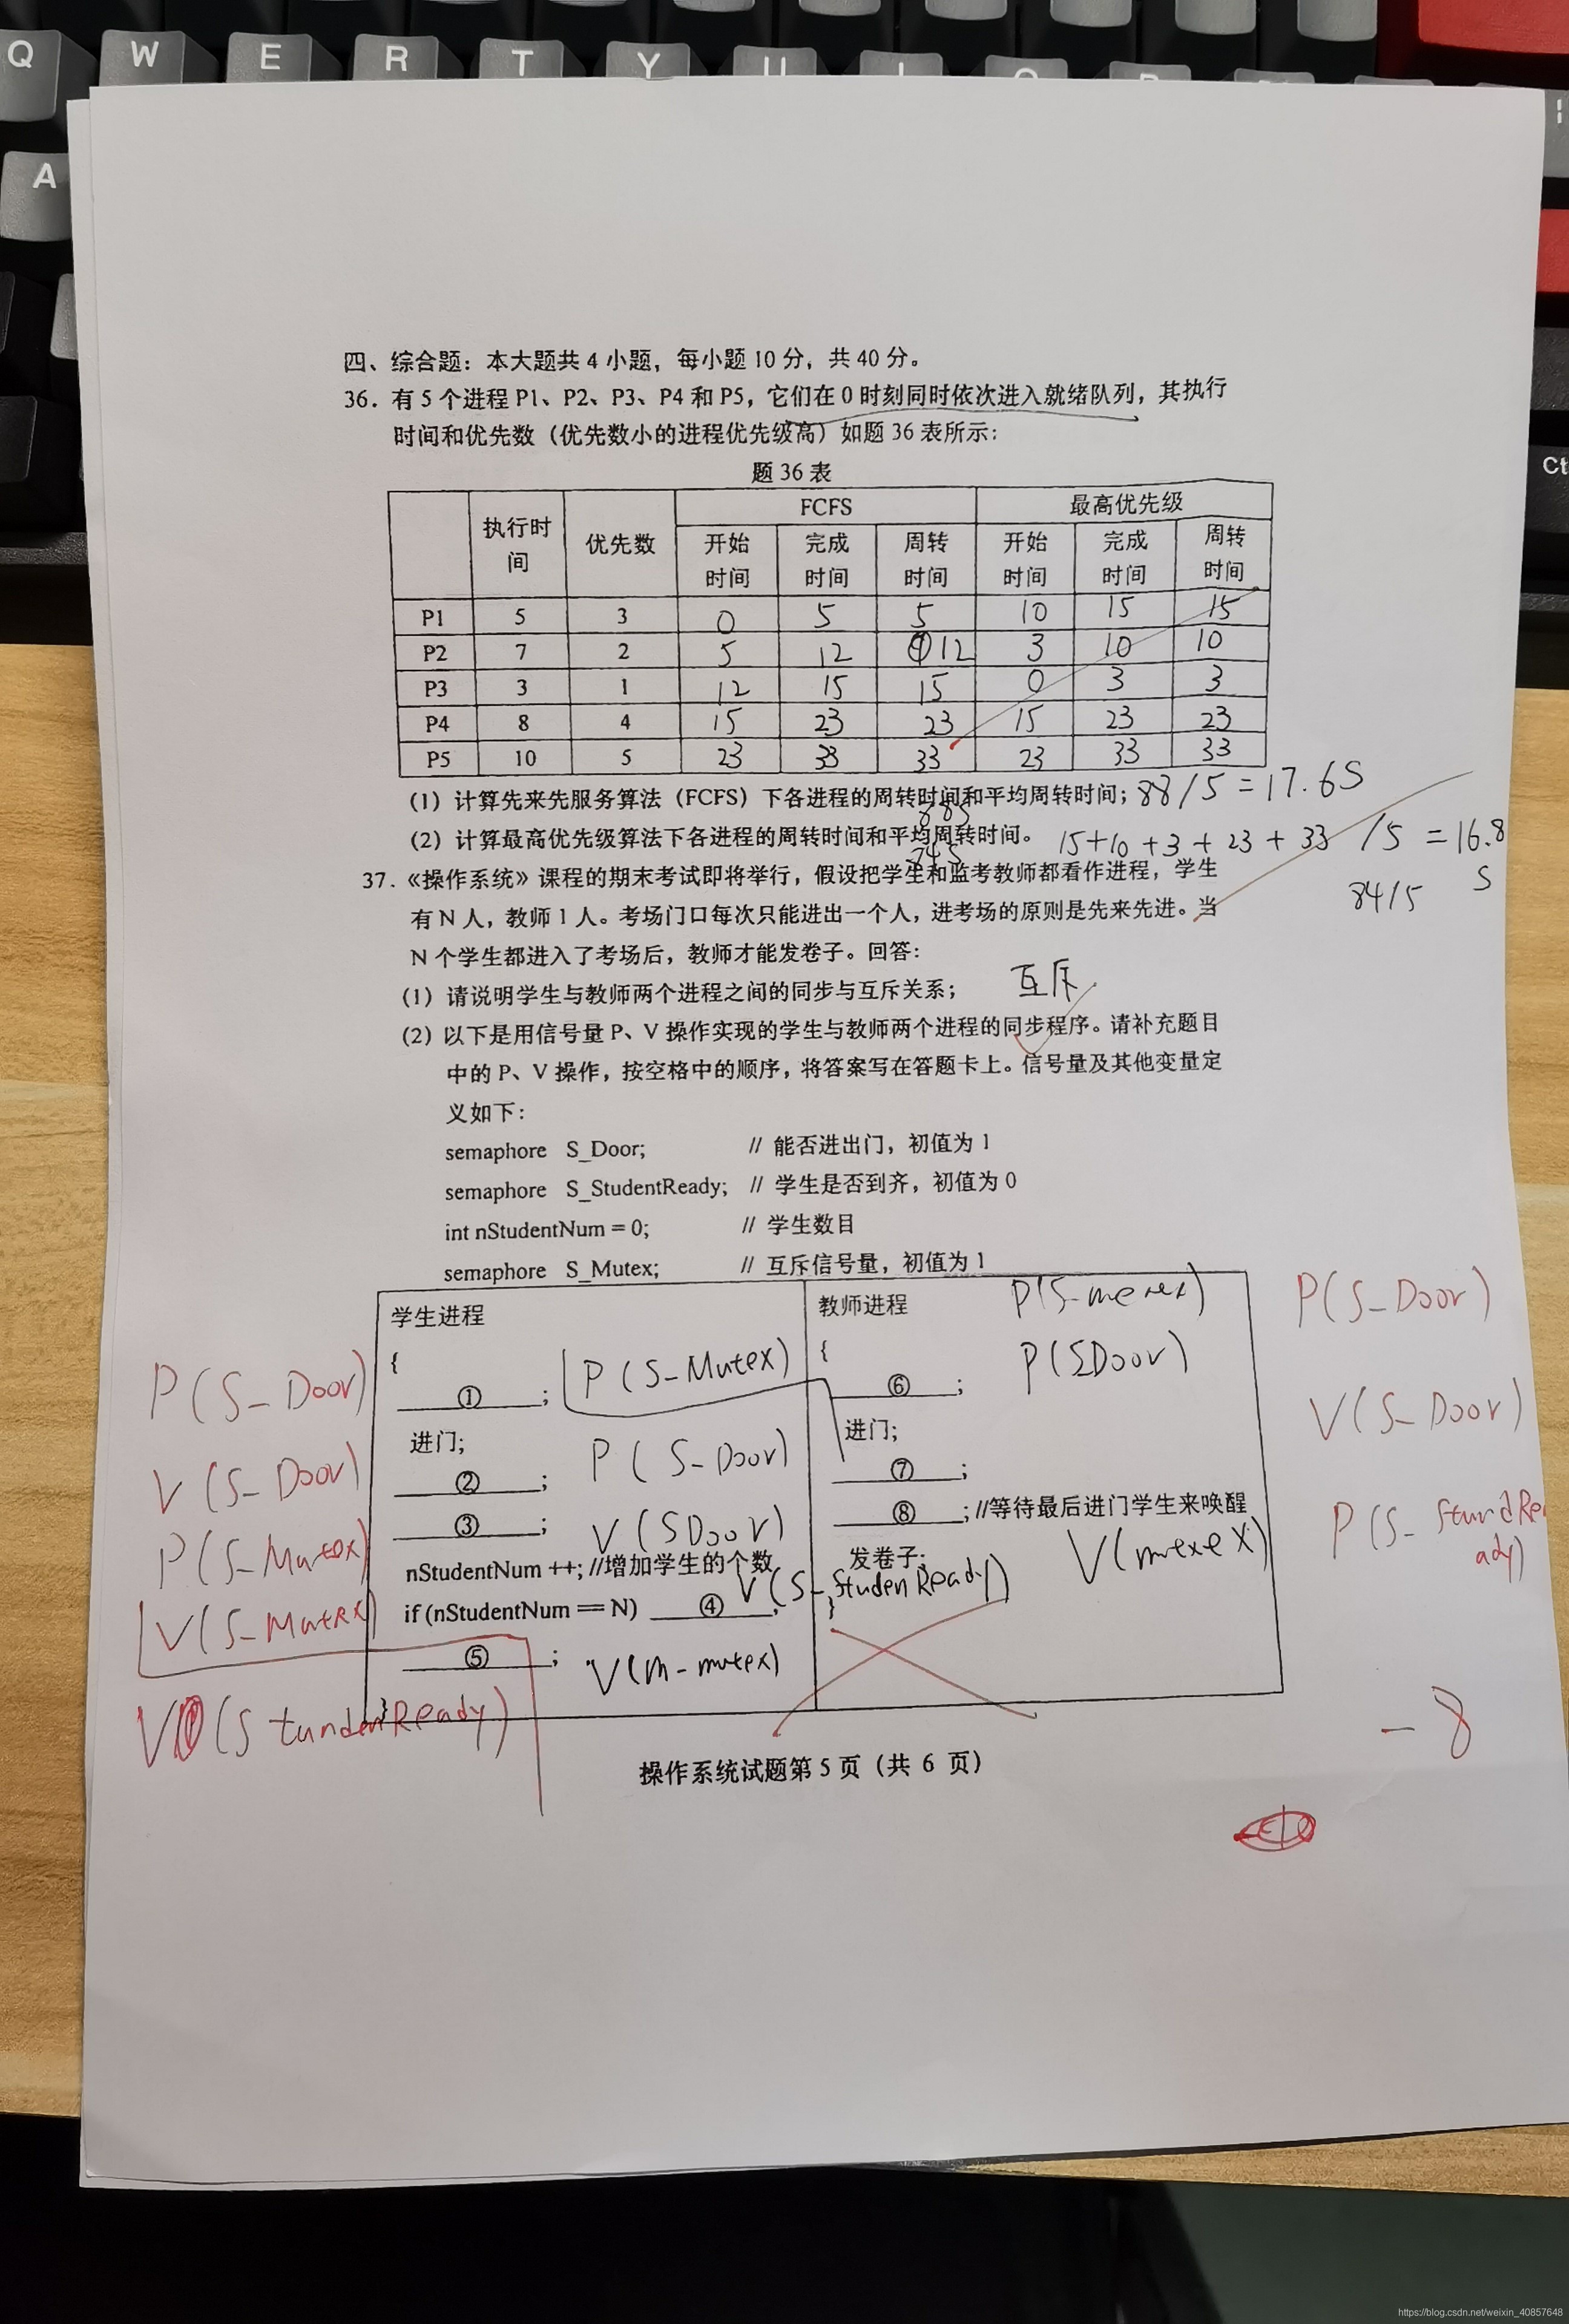 Q W E R T Y U I O P
A
Ct
四、综合题：本大题共 4 小题，每小题 10 分，共 40 分。
36．有 5 个进程 P1、P2、P3、P4 和 P5，它们在 0 时刻同时依次进入就绪队列，其执行
时间和优先数（优先数小的进程优先级高）如题 36 表所示：
题 36 表
执行时间 优先数 FCFS 最高优先级
开始时间 完成时间 周转时间 开始时间 完成时间 周转时间
P1 5 3 0 5 5 10 15 15
P2 7 2 5 12 12 3 10 10
P3 3 1 12 15 15 0 3 3
P4 8 4 15 23 23 15 23 23
P5 10 5 23 33 33 23 33 33
（1）计算先来先服务算法（FCFS）下各进程的周转时间和平均周转时间； 88/5=17.6S
（2）计算最高优先级算法下各进程的周转时间和平均周转时间。 15+10+3+23+33 /5 =16.8
S
84/5
37．《操作系统》课程的期末考试即将举行，假设把学生和监考教师都看作进程，学生
有 N 人，教师 1 人。考场门口每次只能进出一个人，进考场的原则是先来先进。当
N 个学生都进入了考场后，教师才能发卷子。回答：
（1）请说明学生与教师两个进程之间的同步与互斥关系； 互斥
（2）以下是用信号量 P、V 操作实现的学生与教师两个进程的同步程序。请补充题目
中的 P、V 操作，按空格中的顺序，将答案写在答题卡上。信号量及其他变量定
义如下：
semaphore S_Door; // 能否进出门，初值为 1
semaphore S_StudentReady; // 学生是否到齐，初值为 0
int nStudentNum = 0; // 学生数目
semaphore S_Mutex; // 互斥信号量，初值为 1
学生进程
{
①;
进门;
②;
③;
nStudentNum ++; //增加学生的个数
if (nStudentNum == N) ④;
⑤;
}
P(S-Mutex)
P(S-Door)
V(SDoor)
V(S-StudenReady)
V(m-mutex)
教师进程
{
⑥;
进门;
⑦;
⑧; //等待最后进门学生来唤醒
发卷子;
}
P(SDoor)
V(mutexeX)
P(S-Door)
V(S-Door)
P(S-Mutex)
V(S-Mutex)
V(StundenReady)
P(S-Door)
V(S-Door)
-8
操作系统试题第 5 页（共 6 页）
https://blog.csdn.net/weixin_40857648